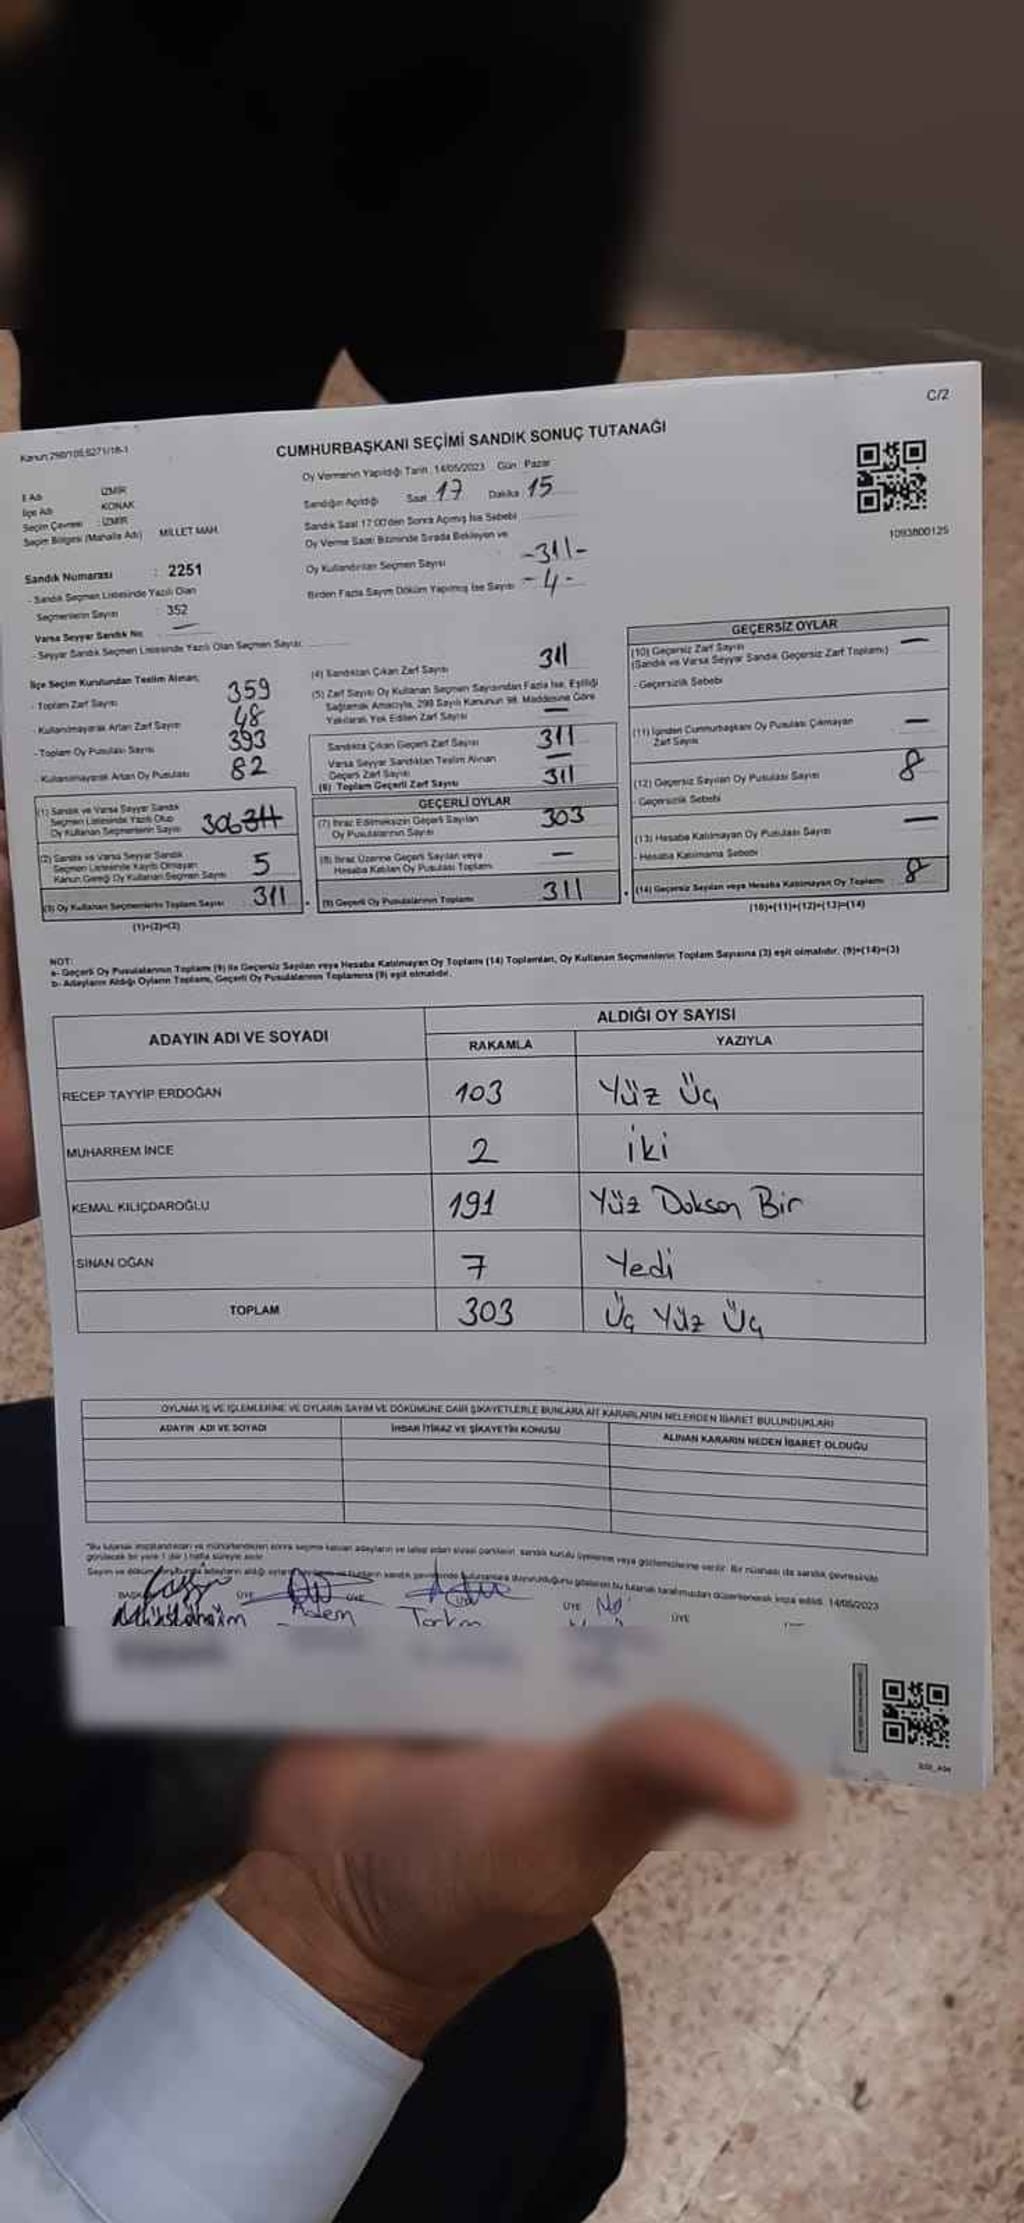 C/2
Kanun:298/105,5271/18-1
CUMHURBAŞKANI SEÇİMİ SANDIK SONUÇ TUTANAĞI
Oy Vermenin Yapıldığı Tarih : 14/05/2023 Gün : Pazar
İl Adı İZMİR
İlçe Adı KONAK
Seçim Çevresi : İZMİR
Seçim Bölgesi (Mahalle Adı) MİLLET MAH.
Sandığın Açıldığı Saat 17 Dakika 15
Sandık Saat 17:00'den Sonra Açılmış İse Sebebi
Oy Verme Saati Bitiminde Sırada Bekleyen ve
Oy Kullandırılan Seçmen Sayısı -311-
Birden Fazla Sayım Döküm Yapılmış İse Sayısı -4-
1093800125
Sandık Numarası : 2251
- Sandık Seçmen Listesinde Yazılı Olan
Seçmenlerin Sayısı : 352
Varsa Seyyar Sandık No
- Seyyar Sandık Seçmen Listesinde Yazılı Olan Seçmen Sayısı:
İlçe Seçim Kurulundan Teslim Alınan;
- Toplam Zarf Sayısı 359
- Kullanılmayarak Artan Zarf Sayısı 48
- Toplam Oy Pusulası Sayısı 393
- Kullanılmayarak Artan Oy Pusulası 82
(1) Sandık ve Varsa Seyyar Sandık
Seçmen Listesinde Yazılı Olup
Oy Kullanan Seçmenlerin Sayısı
(2) Sandık ve Varsa Seyyar Sandık
Seçmen Listesinde Kayıtlı Olmayan
Kanun Gereği Oy Kullanan Seçmen Sayısı 5
(3) Oy Kullanan Seçmenlerin Toplam Sayısı 311
(1)+(2)=(3)
(4) Sandıktan Çıkan Zarf Sayısı 311
(5) Zarf Sayısı Oy Kullanan Seçmen Sayısından Fazla İse, Eşitliği
Sağlamak Amacıyla, 298 Sayılı Kanunun 98. Maddesine Göre
Yakılarak Yok Edilen Zarf Sayısı —
Sandıkta Çıkan Geçerli Zarf Sayısı 311
Varsa Seyyar Sandıktan Teslim Alınan
Geçerli Zarf Sayısı —
(6) Toplam Geçerli Zarf Sayısı 311
GEÇERLİ OYLAR
(7) İtiraz Edilmeksizin Geçerli Sayılan
Oy Pusulalarının Sayısı 303
(8) İtiraz Üzerine Geçerli Sayılan veya
Hesaba Katılan Oy Pusulası Toplamı —
(9) Geçerli Oy Pusulalarının Toplamı 311
GEÇERSİZ OYLAR
(10) Geçersiz Zarf Sayısı —
(Sandık ve Varsa Seyyar Sandık Geçersiz Zarf Toplamı)
- Geçersizlik Sebebi
(11) İçinden Cumhurbaşkanı Oy Pusulası Çıkmayan
Zarf Sayısı —
(12) Geçersiz Sayılan Oy Pusulası Sayısı 8
- Geçersizlik Sebebi
(13) Hesaba Katılmayan Oy Pusulası Sayısı —
- Hesaba Katılmama Sebebi
(14) Geçersiz Sayılan veya Hesaba Katılmayan Oy Toplamı 8
(10)+(11)+(12)+(13)=(14)
NOT:
a- Geçerli Oy Pusulalarının Toplamı (9) ile Geçersiz Sayılan veya Hesaba Katılmayan Oy Toplamı (14) Toplamları, Oy Kullanan Seçmenlerin Toplam Sayısına (3) eşit olmalıdır. (9)+(14)=(3)
b- Adayların Aldığı Oyların Toplamı, Geçerli Oy Pusulalarının Toplamına (9) eşit olmalıdır.
ADAYIN ADI VE SOYADI
ALDIĞI OY SAYISI
RAKAMLA YAZIYLA
RECEP TAYYİP ERDOĞAN 103 Yüz Üç
MUHARREM İNCE 2 iki
KEMAL KILIÇDAROĞLU 191 Yüz Doksan Bir
SİNAN OĞAN 7 Yedi
TOPLAM 303 Üç Yüz Üç
OYLAMA İŞ VE İŞLEMLERİNE VE OYLARIN SAYIM VE DÖKÜMÜNE DAİR ŞİKAYETLERLE BUNLARA AİT KARARLARIN NELERDEN İBARET BULUNDUKLARI
ADAYIN ADI VE SOYADI
İHBAR İTİRAZ VE ŞİKAYETİN KONUSU
ALINAN KARARIN NEDEN İBARET OLDUĞU
ÜYE
ÜYE
ÜYE
ÜYE
Adem